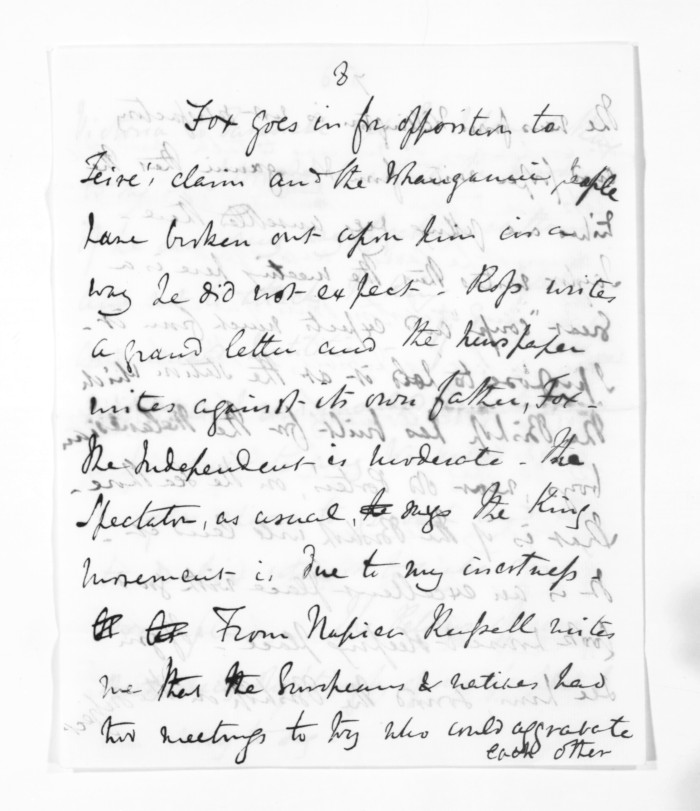 8
Fox goes in for opposition to
Teire's claim and the Whanganui people
have broken out upon him in a
way he did not expect - Ross writes
a grand letter and the newspaper
writes against its own father, Fox -
The Independent is moderate - The
Spectator, as usual, says the King
movement is due to my inertness -
From Napier Russell writes
me that the Europeans & natives had
two meetings to try who could aggravate
each other